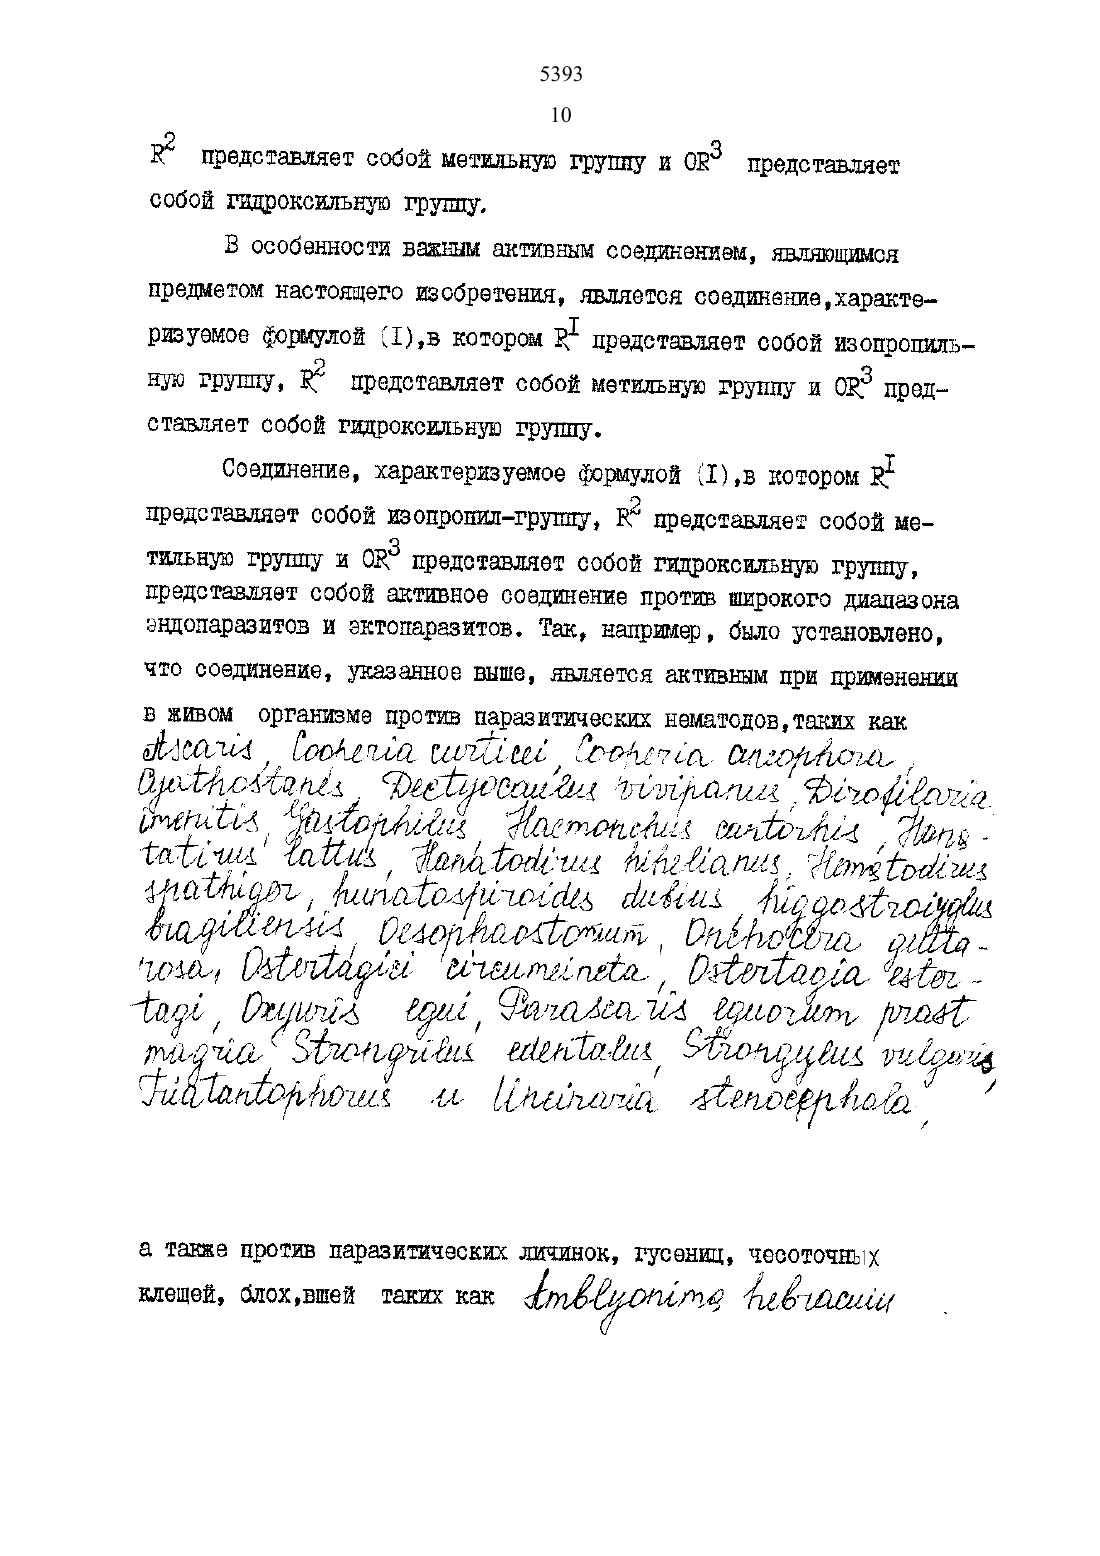 5393
10
R² представляет собой метильную группу и OR³ представляет
собой гидроксильную группу.
В особенности важным активным соединением, являющимся
предметом настоящего изобретения, является соединение,характе-
ризуемое формулой (I),в котором R¹ представляет собой изопропиль-
ную группу, R² представляет собой метильную группу и OR³ пред-
ставляет собой гидроксильную группу.
Соединение, характеризуемое формулой (I),в котором R¹
представляет собой изопропил-группу, R² представляет собой ме-
тильную группу и OR³ представляет собой гидроксильную группу,
представляет собой активное соединение против широкого диапазона
эндопаразитов и эктопаразитов. Так, например, было установлено,
что соединение, указанное выше, является активным при применении
в живом организме против паразитических нематодов,таких как
Ascaris, Cooheria curticei, Cooheria oncophora,
Cyathostanes, Dectyocaulus vivipanus, Dirofilaria
imenitis, Gastophilus, Haemonchus cantorhis, Hana-
tatirus lattus, Hanatodirus hihelianus, Hematodirus
spathiger, hunatospiroides dubius, higgostroigglus
bragiliensis, Oesophaostomum, Onchocera gutta-
rosa, Ostertagiei circumeineta, Ostertagia ester-
tagi, Oxyuris egui, Parascaris equorum prast
magria Strongrilus edentalus, Strongylus vulgaris,
Tuatantophorus и Uneinaria stenocephala,
а также против паразитических личинок, гусениц, чесоточных
клещей, блох,вшей таких как Amblyonima hebracuiu